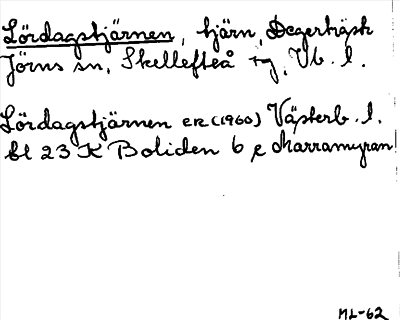 Lördagstjärnen, tjärn, Degerträsk
Jörns sn, Skellefteå tg, Vb. l.
Lördagstjärnen ER (1960) Västerb. l.
bl 23 K Boliden 6 e Marramyran
ML-62